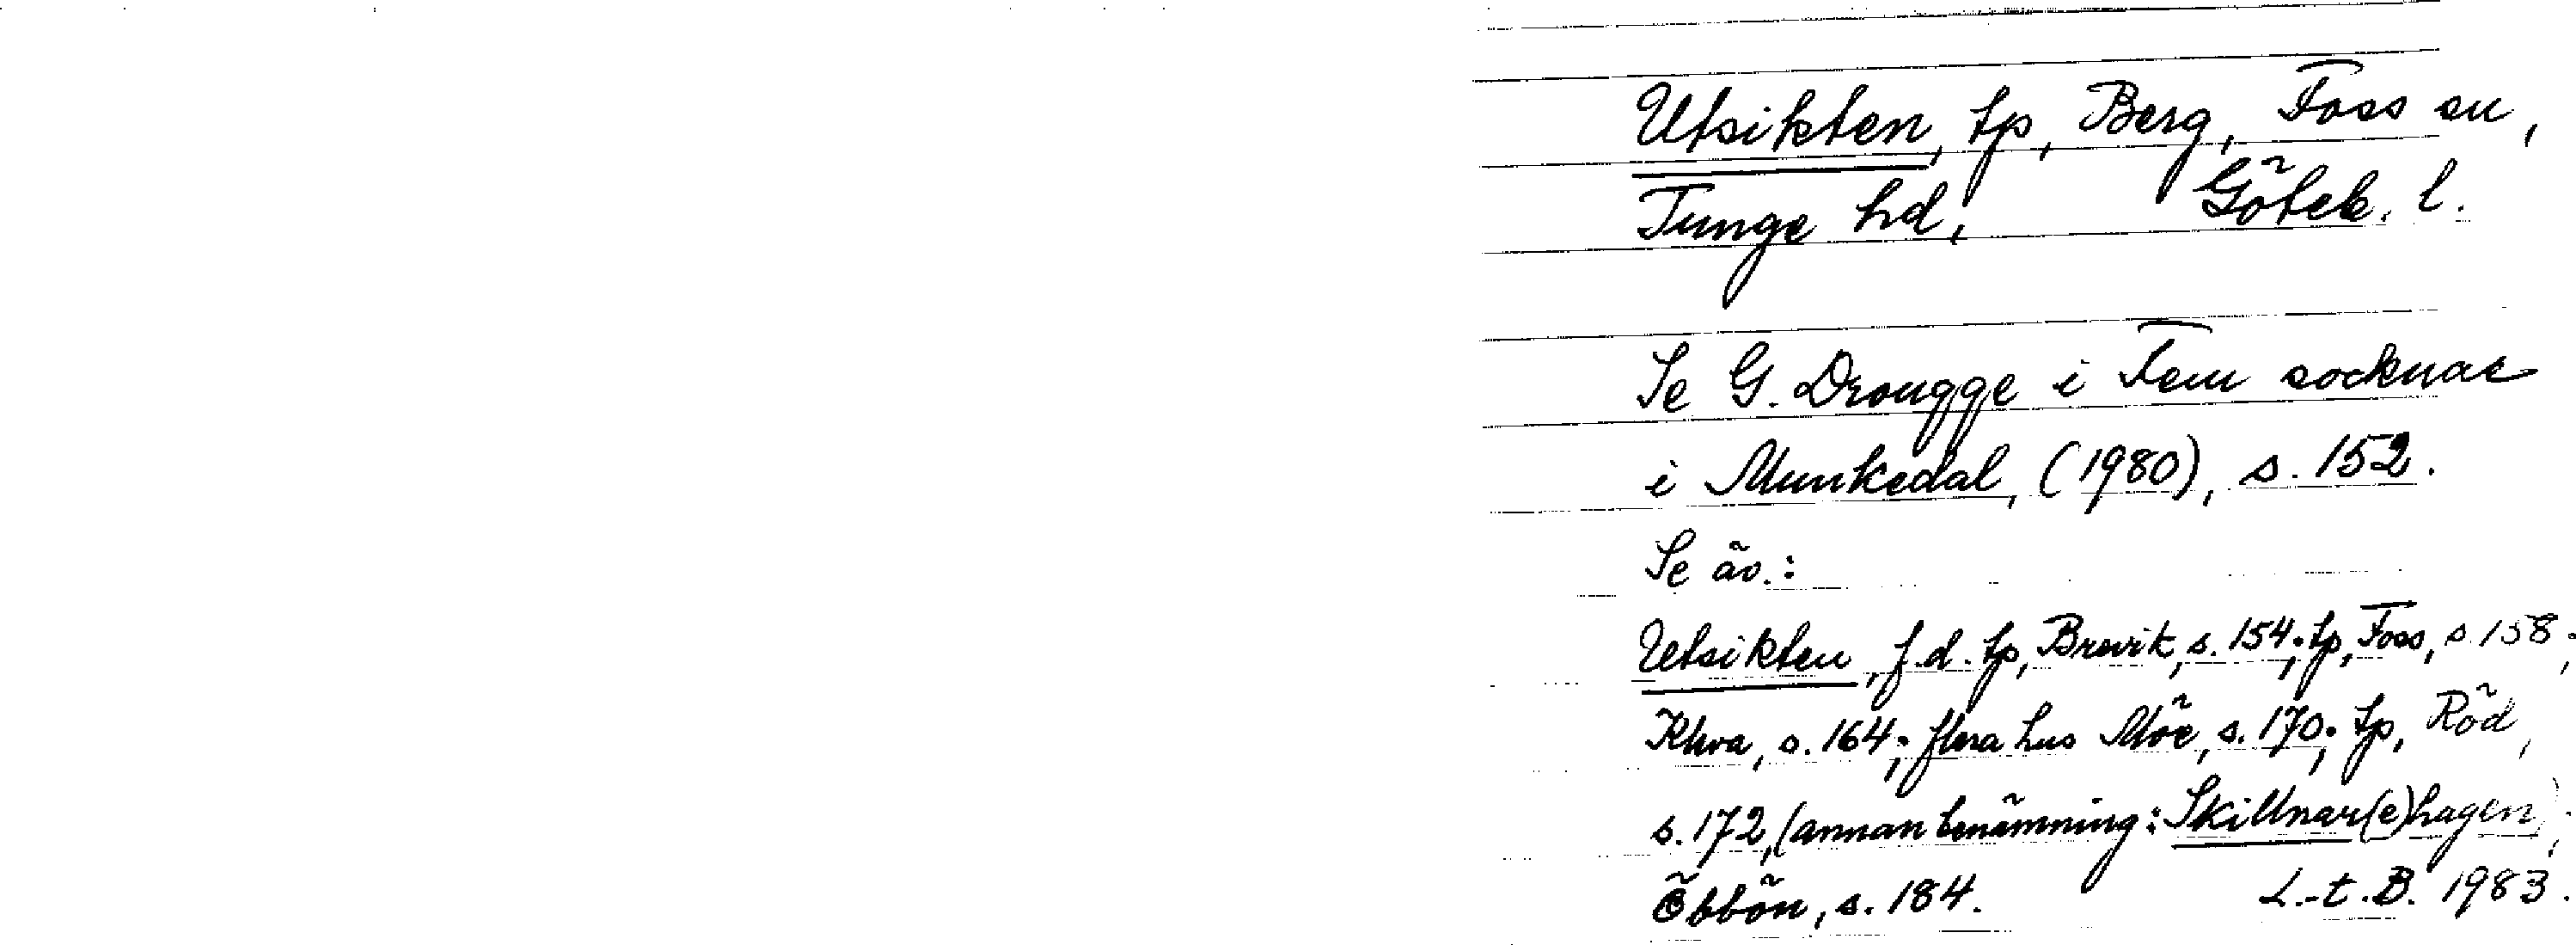 Utsikten, tp, Berg, Foss sn,
Tunge hd, Göteb. l.
Se G. Drougge i Fem socknar
i Munkedal, (1980), s. 152.
Se äv.:
Utsikten, f.d. tp, Brevik, s. 154; tp, Foss, s. 158;
Kleva, s. 164; flera hus Möe, s. 170; tp, Röd,
s. 172, (annan benämning: Skillnar(e)hagen);
Öbbön, s. 184. L.-t. B. 1983.